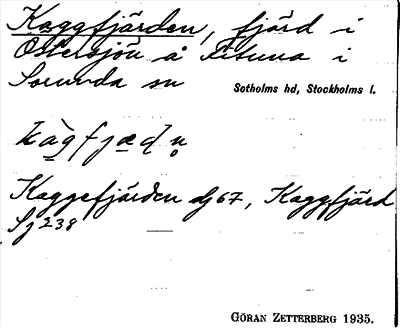 Kaggfjärden, fjärd i
Östersjön å Fituna i
Sorunda sn
Sotholms hd, Stockholms l.
kàgfjæḍn̥
Kaggefjärden dj 67, Kaggfjärd
Sj 238
GÖRAN ZETTERBERG 1935.